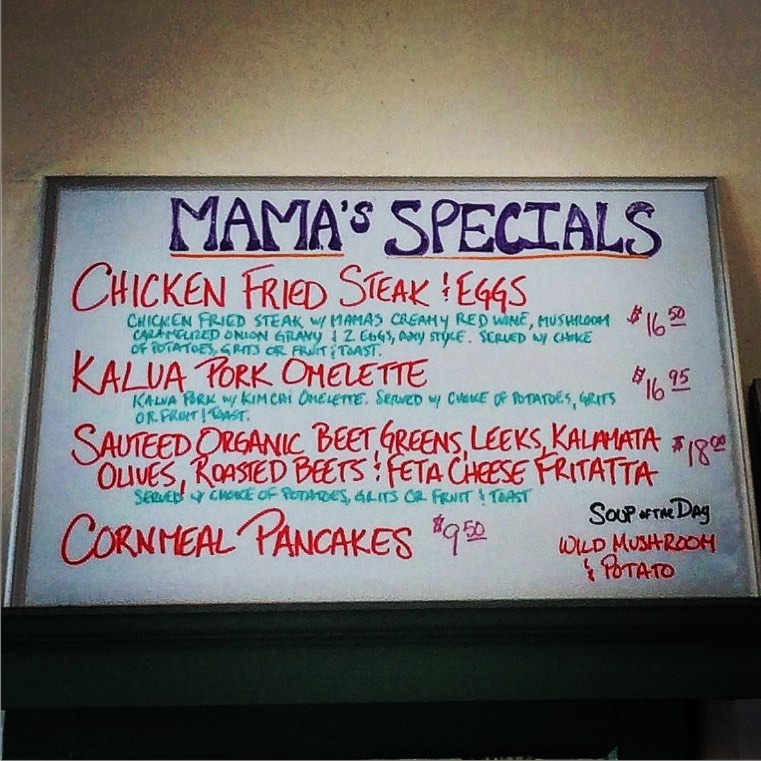 MAMA'S SPECIALS
CHICKEN FRIED STEAK & EGGS
CHICKEN FRIED STEAK W/ MAMAS CREAMY RED WINE, MUSHROOM
CARAMELIZED ONION GRAVY & 2 EGGS, ANY STYLE. SERVED W/ CHOICE
OF POTATOES, GRITS OR FRUIT & TOAST.
$16.50
KALUA PORK OMELETTE
KALUA PORK W/ KIMCHI OMELETTE. SERVED W/ CHOICE OF POTATOES, GRITS
OR FRUIT & TOAST.
$16.95
SAUTEED ORGANIC BEET GREENS, LEEKS, KALAMATA
OLIVES, ROASTED BEETS & FETA CHEESE FRITATTA
$18.00
SERVED W/ CHOICE OF POTATOES, GRITS OR FRUIT & TOAST
CORNMEAL PANCAKES $9.50
SOUP OF THE DAY
WILD MUSHROOM
& POTATO